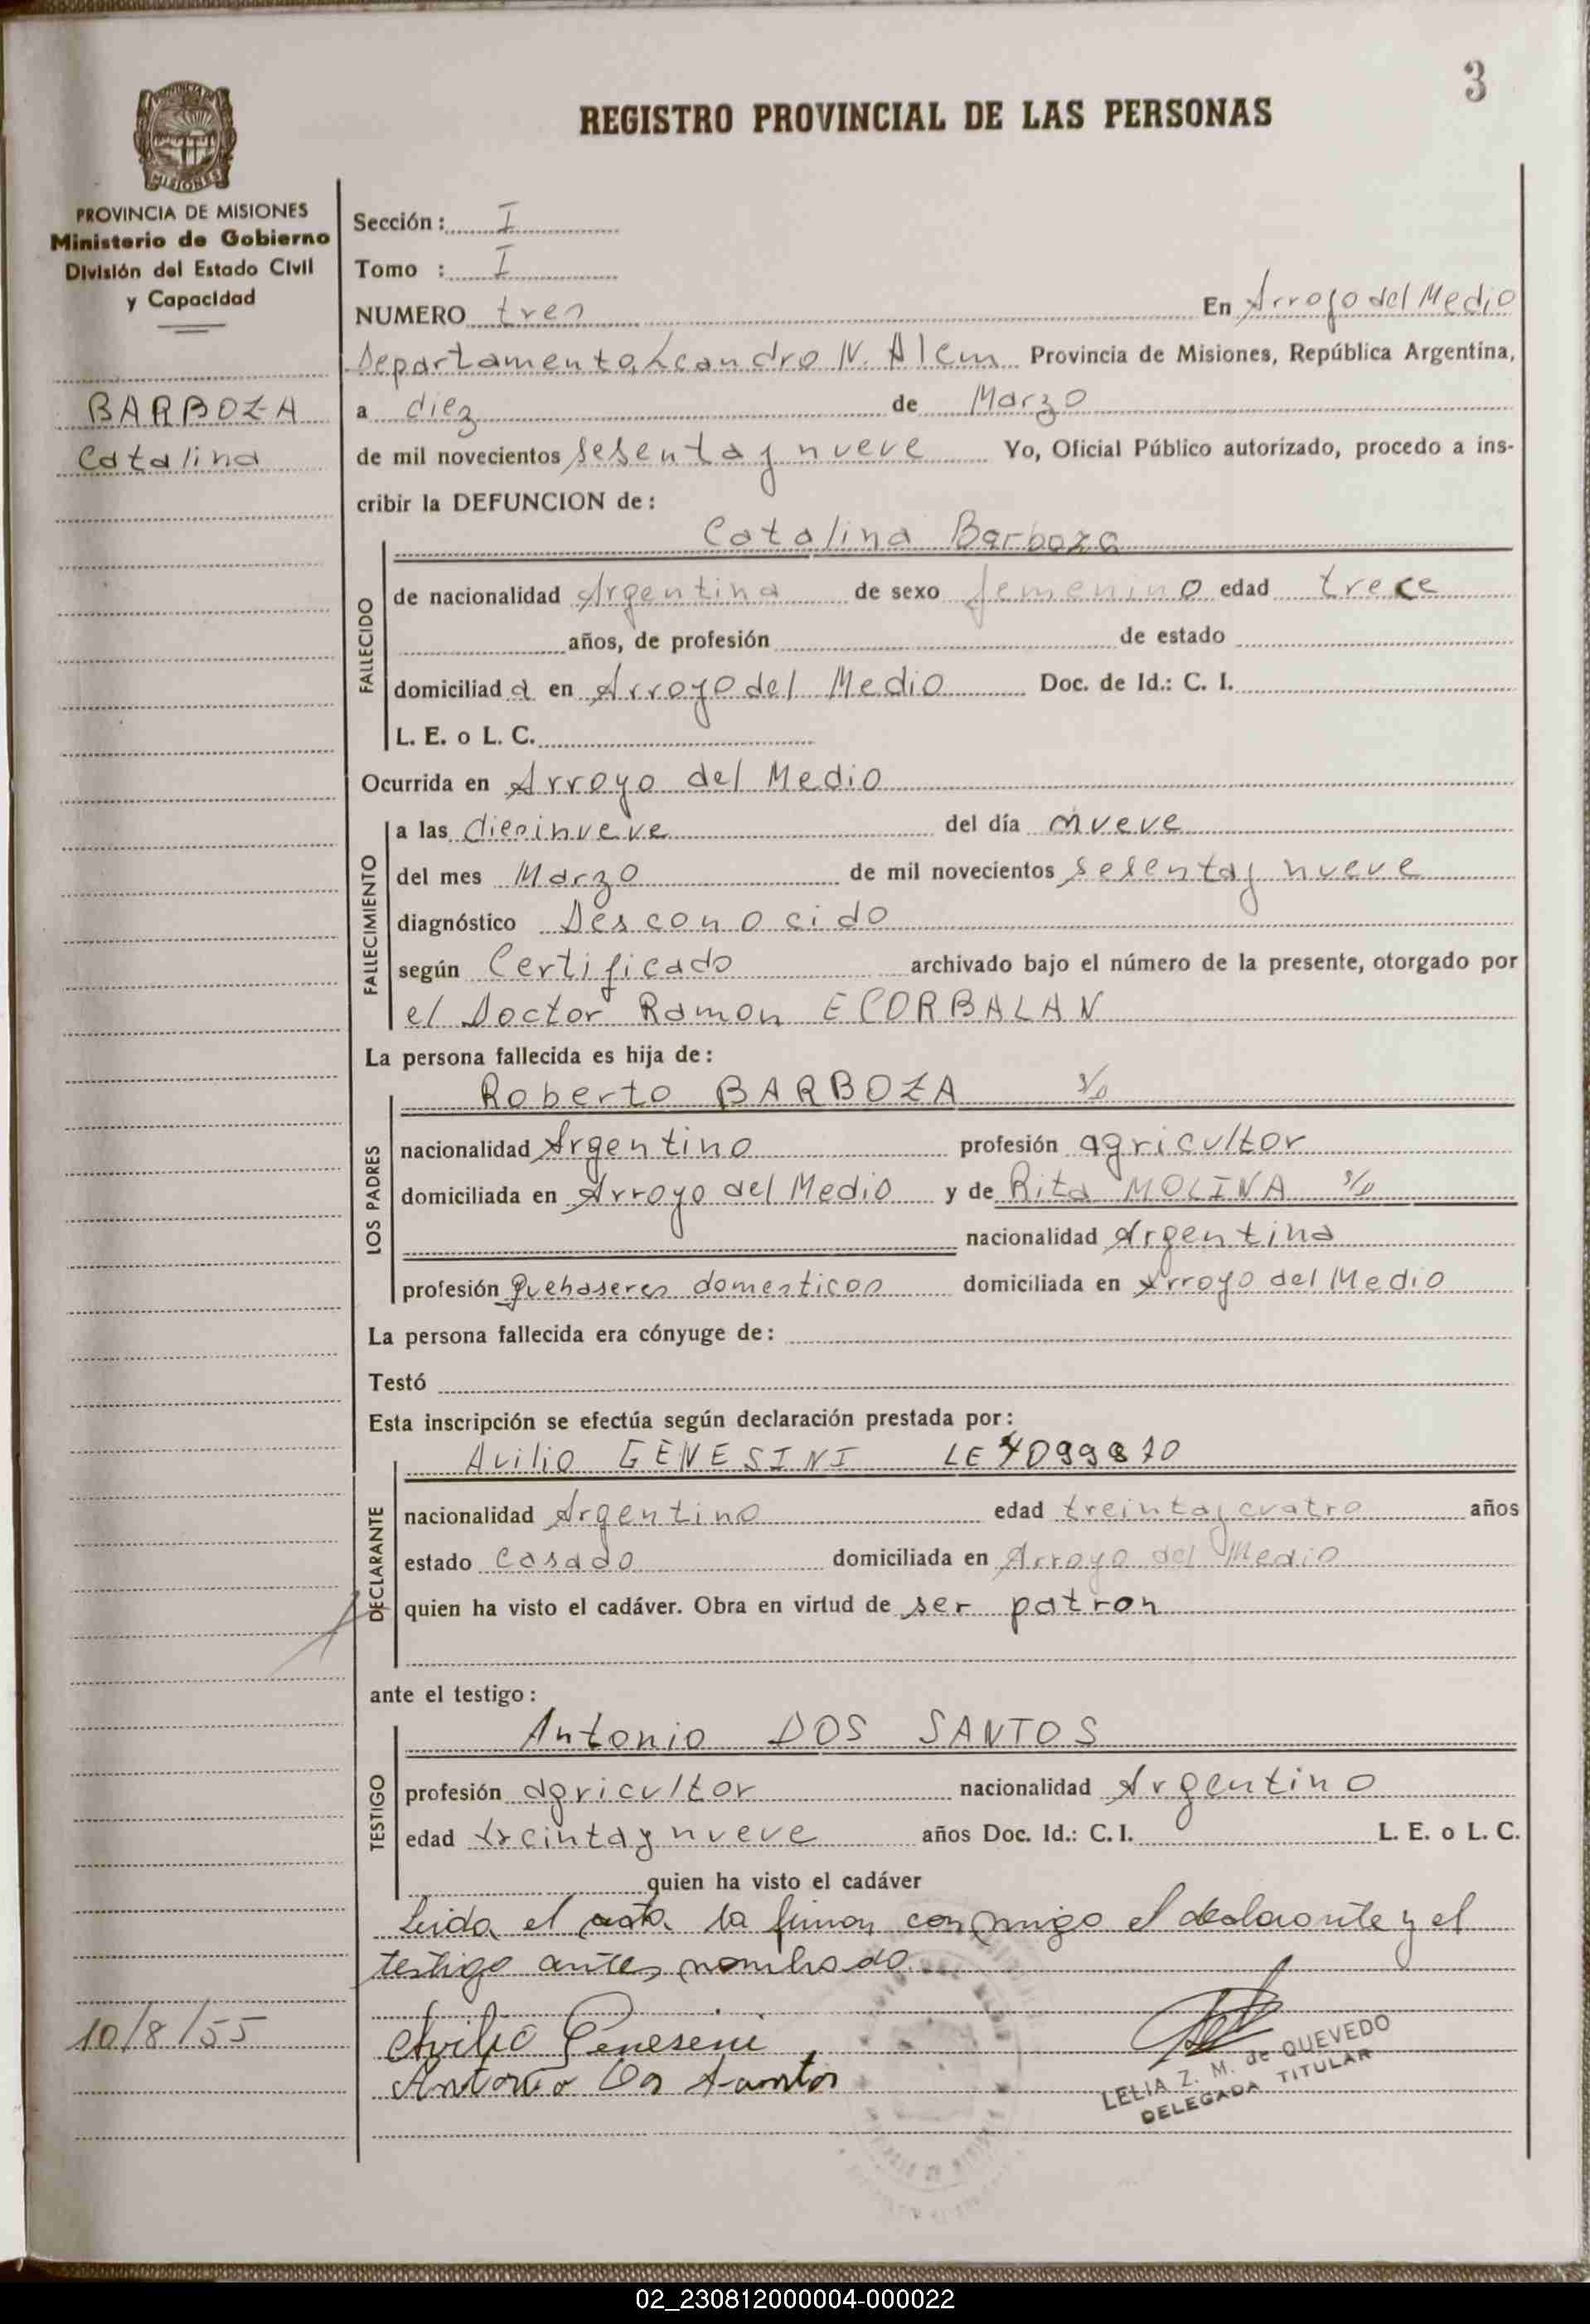 3
REGISTRO PROVINCIAL DE LAS PERSONAS
MISIONES
PROVINCIA DE MISIONES
Ministerio de Gobierno
División del Estado Civil
y Capacidad
BARBOZA
Catalina
Sección: I
Tomo : I
NUMERO tres En Arroyo del Medio
Departamento Leandro N. Alem Provincia de Misiones, República Argentina,
a diez de Marzo
de mil novecientos sesenta y nueve Yo, Oficial Público autorizado, procedo a ins-
cribir la DEFUNCION de:
Catalina Barboza
FALLECIDO
de nacionalidad Argentina de sexo femenino edad trece
años, de profesión de estado
domiciliad a en Arroyo del Medio Doc. de Id.: C. I.
L. E. o L. C.
Ocurrida en Arroyo del Medio
FALLECIMIENTO
a las diesinueve del día nueve
del mes Marzo de mil novecientos sesenta y nueve
diagnóstico Desconocido
según Certificado archivado bajo el número de la presente, otorgado por
el Doctor Ramon E CORBALAN
La persona fallecida es hija de:
Roberto BARBOZA s/d
LOS PADRES
nacionalidad Argentino profesión agricultor
domiciliada en Arroyo del Medio y de Rita MOLINA s/d
nacionalidad Argentina
profesión Quehaseres domesticos domiciliada en Arroyo del Medio
La persona fallecida era cónyuge de:
Testó
Esta inscripción se efectúa según declaración prestada por:
Avilio GENESINI LE
DECLARANTE
nacionalidad Argentino edad treinta y cuatro años
estado Casado domiciliada en Arroyo del Medio
quien ha visto el cadáver. Obra en virtud de ser patron
ante el testigo:
Antonio DOS SANTOS
TESTIGO
profesión agricultor nacionalidad Argentino
edad treinta y nueve años Doc. Id.: C. I. L. E. o L. C.
quien ha visto el cadáver
Leida el acta la firman conmigo el declarante y el
testigo antes nombrado
10/8/55
Avilio Genesini
Antonio Dos Santos
LELIA Z. M. de QUEVEDO
DELEGADA TITULAR
02_230812000004-000022